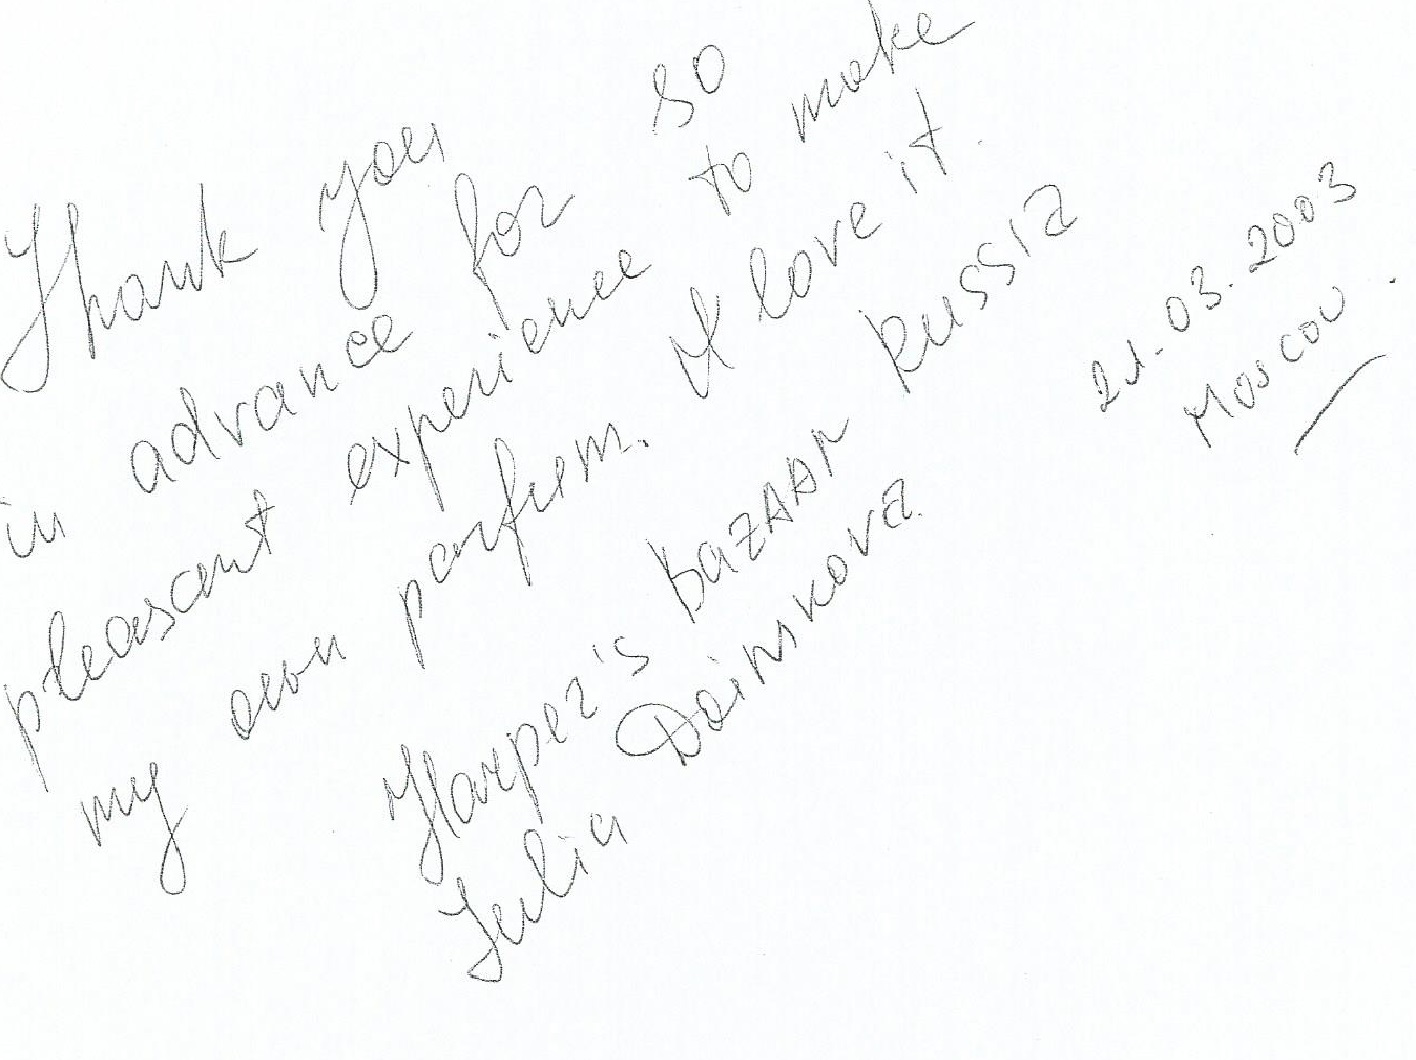 Thank you
in advance for so
pleasant experience to make
my own parfum. I love it.
Harper's Bazaar Russia
Julia
21.03.2003
Moscow